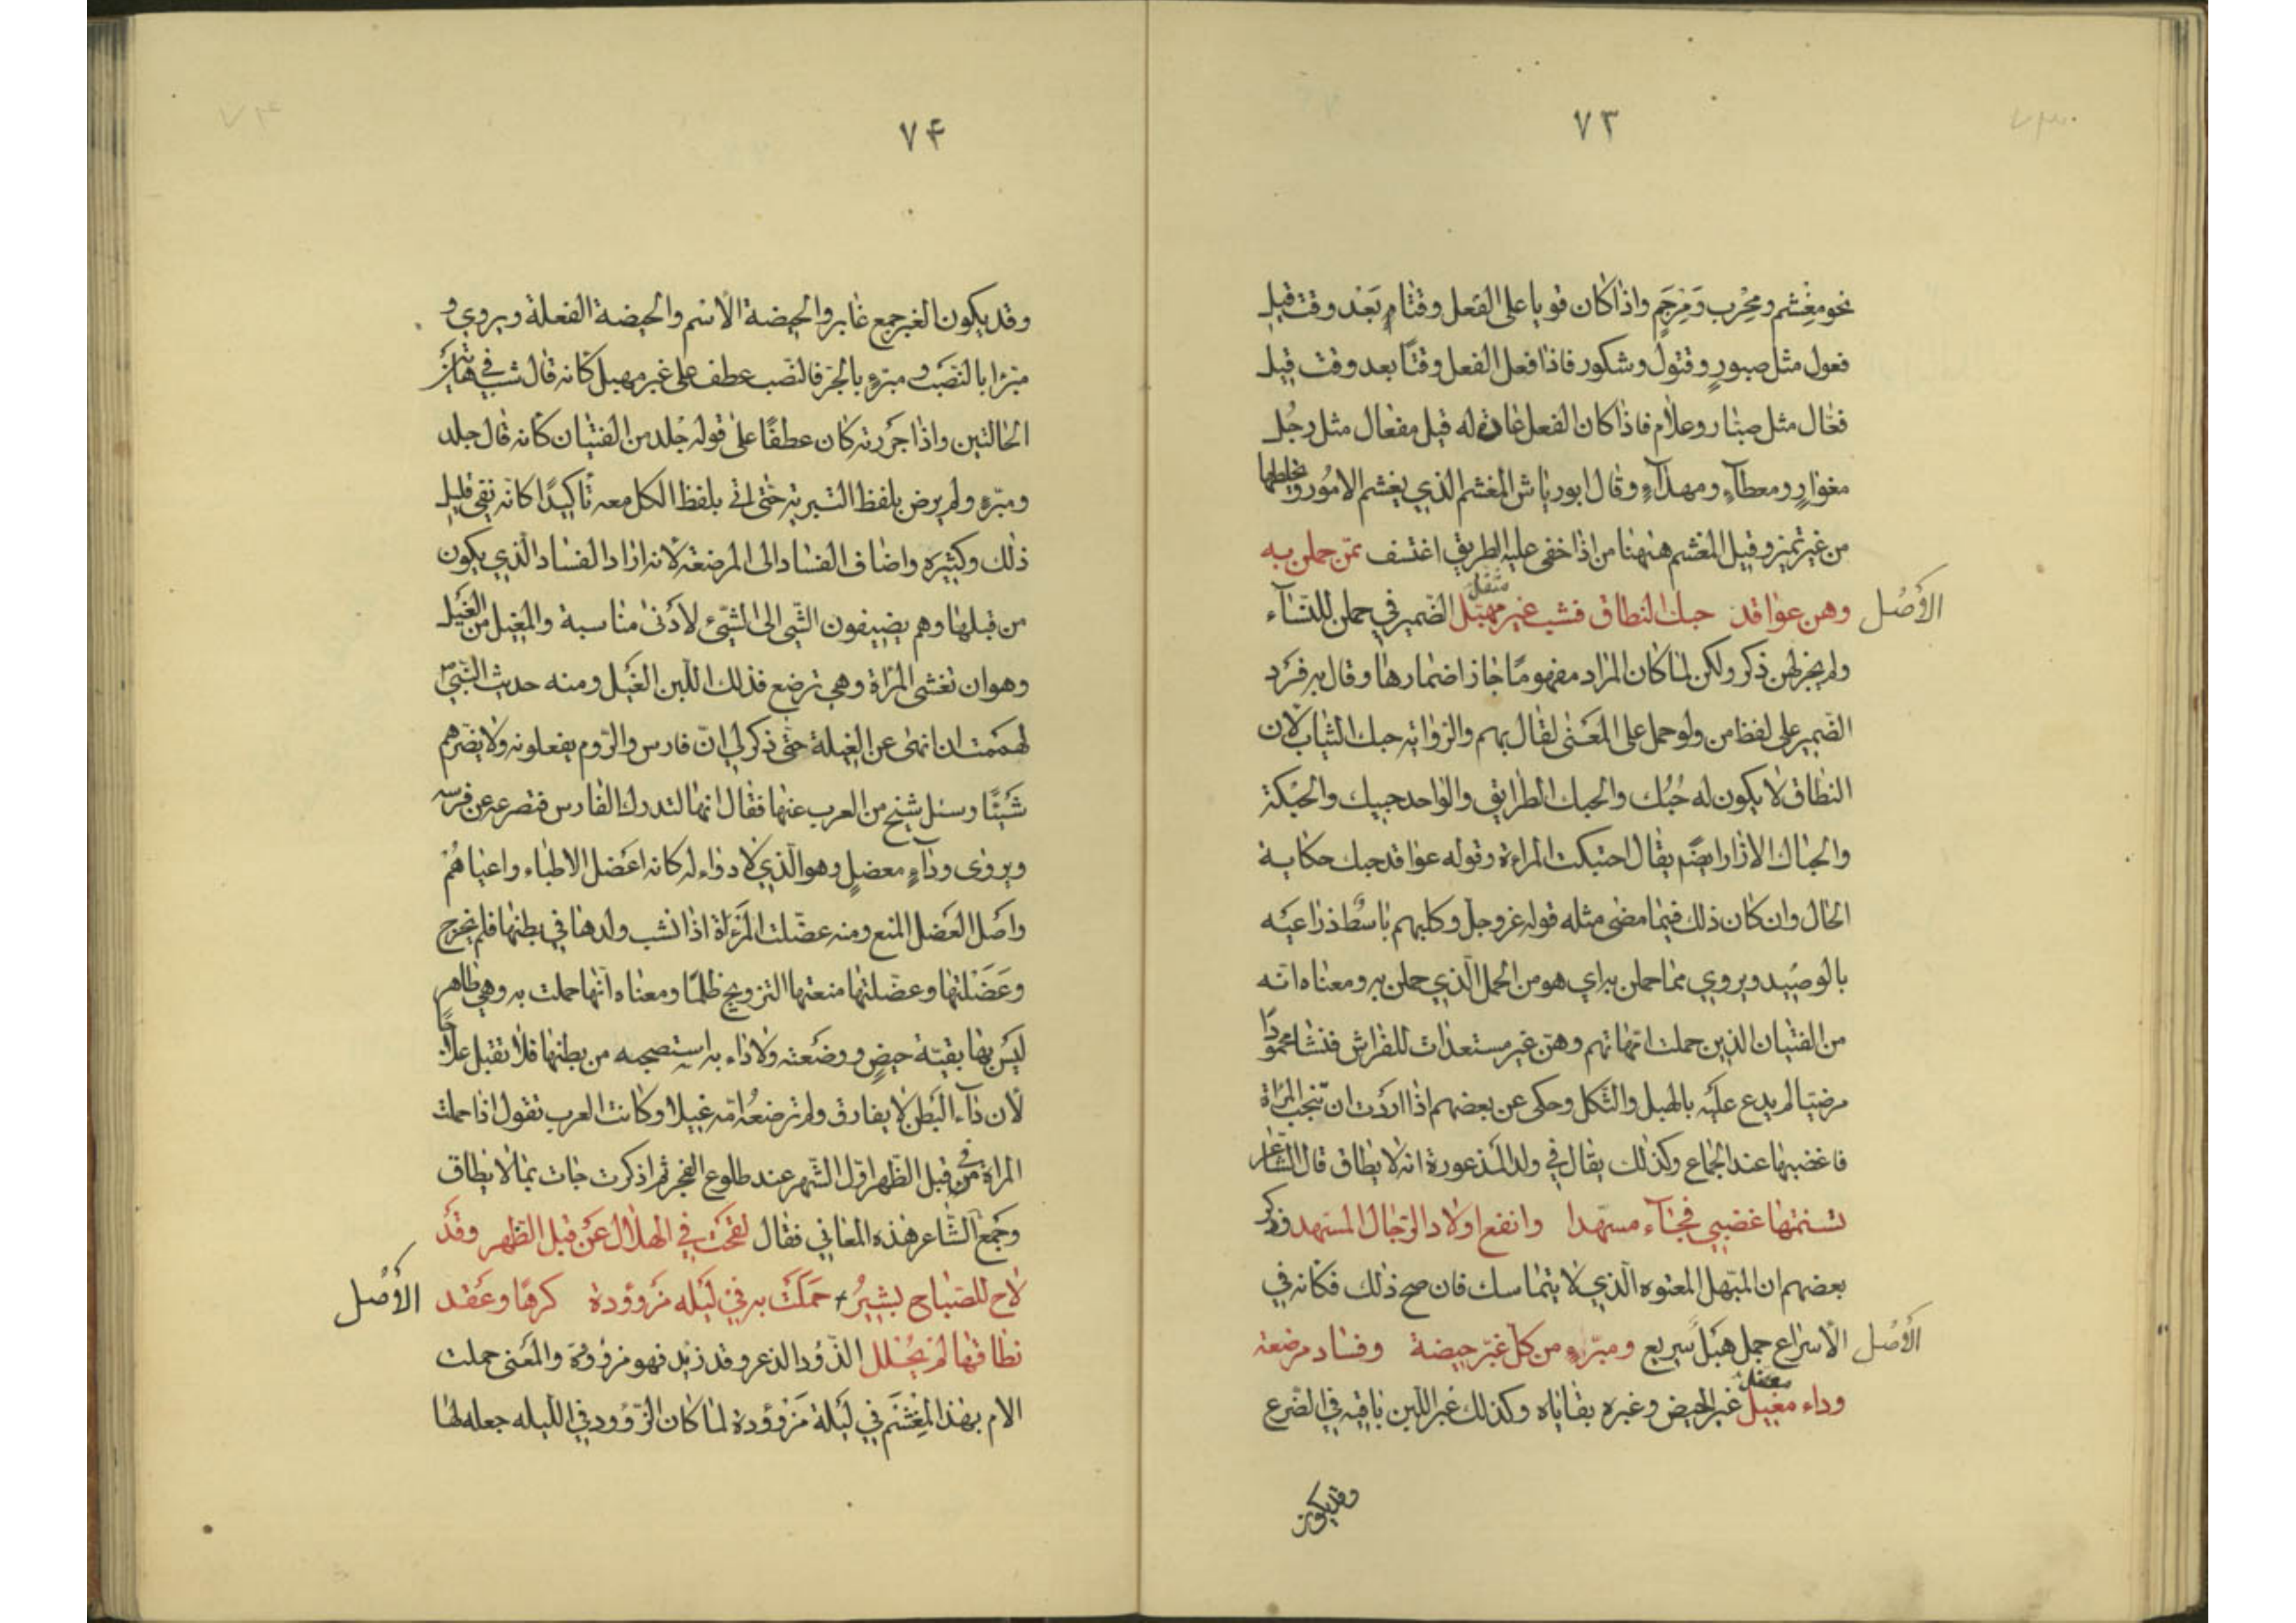 ٧٣
نحو مغشم ومحرب ومرجم واذا كان قويا على الفعل وقتا بعد وقت قيل
فعول مثل صبور وقتول وشكور فاذا فعل الفعل وقتًا بعد وقت قيل
فعّال مثل صبّار وعلام فاذا كان الفعل عادة له قيل مفعال مثل رجل
مغوار ومعطآء ومهدآء وقال ابو رياش المغشم الذي يغشم الامور ويخلطها
من غير تميز وقيل المغشم هيهنا من اذا خفى عليه الطريق اعتسف ممّن حملن به
الأَصْل
وهن عواقد حبك النطاق فشب غير مهبّل الضمير في حملن للنسآء
مثقل
ولم يجر لهن ذكر ولكن لما كان المراد مفهومًا جاز اضمارها وقال به فرد
الضمير على لفظ من ولو حمل على المعنى لقال بهم والرواية حبك الثياب لان
النطاق لا يكون له حُبُك والحبك الطرايق والواحد حبيك والحبكة
والحباك الازار ايضًا يقال احتبكت المراءة وقوله عواقد حبك حكاية
الحال وان كان ذلك فيما مضى مثله قوله عز وجل وكلبهم باسط ذراعيه
بالوصيد ويروي مما حملن به اي هو من الحمل الّذي حملن به ومعناه انّه
من الفتيان الذين حملت امّهاتهم وهنّ غير مستعدات للفراش فنشا محمودًا
مرضيا لم يدع عليه بالهبل والثكل وحكى عن بعضهم اذا اردت ان تنجب المراة
فاغضبها عند الجماع وكذلك يقال في ولد المذعورة انه لا يطاق قال الشّاعر
تسنمتها غضبي فجآء مسهّدا وانفع اولاد الرّجال المسهد وذكر
بعضهم ان المبّهل المعتوه الّذي لا يتماسك فان صح ذلك فكانه في
الأَصْل
الاسراع جمل هبل سريع ومبرّء من كل غبّر حيضة وفساد مرضعة
معضل
وداء مغيل غبر الحيض وغبره بقاياه وكذلك غبر اللّبن باقيه في الضّرع
وقد يكون
٧۴
وقد يكون الغبر جمع غابر والحيضة الاسم والحيضة الفعلة ويروي و
مبرّا بالنصب و مبرّءٍ بالجر فالنّصب عطف على غير مهبل كانه قال شب في هاتين
الحالتين واذا جررته كان عطفًا على قوله جلد من الفتيان كانه قال جلد
ومبرّءٍ ولم يرض بلفظ التبرية حتّى اتى بلفظ الكل معه تأكيدًا كانّه نقى قليل
ذلك وكثيره واضاف الفساد الى المرضعة لانه اراد الفساد الّذي يكون
من قبلها وهم يضيفون الشّي الى الشّيء لأدنى مناسبة والمغيل من الغيل
وهو ان تغشى المراة وهي ترضع فذلك اللّبن الغيل ومنه حديث النّبيّ
لهممت ان انهى عن الغيلة حتّى ذكر لي انّ فارس والرّوم يفعلونه ولا يضرهم
شيئًا وسئل شيخ من العرب عنها فقال انها لتدرك الفارس فتصرعه عن فرسه
ويروى وداءٍ معضلٍ وهو الّذي لا دواء له كانه اعضل الاطباء واعياهم
واصل العضل المنع ومنه عضّلت المراة اذا نشب ولدها في بطنها فلم يخرج
وعَضَلتها وعضّلتها منعتها التزويج ظلمًا ومعناه انّها حملت به وهي طاهر
ليس بها بقيّة حيض ووضعته ولا داء به استصحبه من بطنها فلا تقبل علاجًا
لأن داء البَطن لا يفارق ولم ترضعه امّه غيلا وكانت العرب تقول اذا حملت
المراة في قبل الظهر اوّل الشّهر عند طلوع الفجر ثم اذكرت جات بما لا يطاق
وجمع الشّاعر هذه المعاني فقال لقحت في الهلال عن قبل الظهر وقد
الأَصْل
لاح للصّباح بشيرُ حملت به في ليلة مزوودة كرهًا وعقد
نطاقها لم يحلل الزّؤد الذعر وقد زئد فهو مزوود والمعنى حملت
الام بهذا المغشم في ليلة مزوودة لما كان الزّوود في اللّيله جعله لها